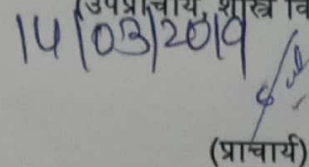 (उपप्राचार्य, शास्त्र वि
14/03/2019
(प्राचार्य)